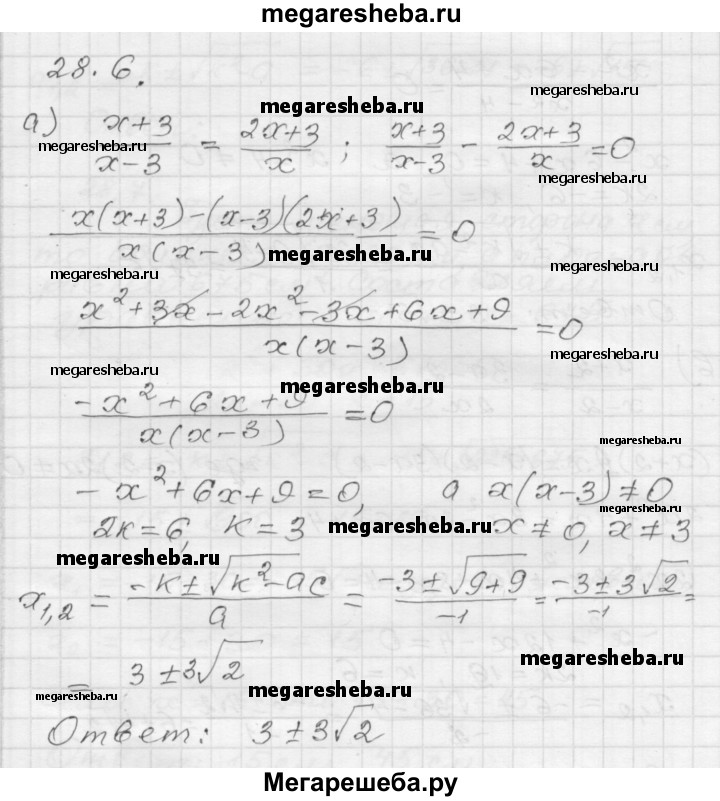 megaresheba.ru
28.6.
megaresheba.ru
megaresheba.ru
а) (x+3)/(x-3) = (2x+3)/x ; (x+3)/(x-3) - (2x+3)/x = 0
megaresheba.ru
megaresheba.ru
(x(x+3)-(x-3)(2x+3))/(x(x-3)) = 0
megaresheba.ru
megaresheba.ru
megaresheba.ru
(x²+3x-2x²-3x+6x+9)/(x(x-3)) = 0
megaresheba.ru
megaresheba.ru
megaresheba.ru
(-x²+6x+9)/(x(x-3)) = 0
megaresheba.ru
-x²+6x+9=0, а x(x-3)≠0
megaresheba.ru
2k=6, k=3 x≠0, x≠3
megaresheba.ru
megaresheba.ru
x₁,₂ = (-k±√(k²-ac))/a = (-3±√(9+9))/-1 = (-3±3√2)/-1 =
megaresheba.ru
= 3±3√2
megaresheba.ru
megaresheba.ru
Ответ: 3±3√2
Мегарешеба.ру